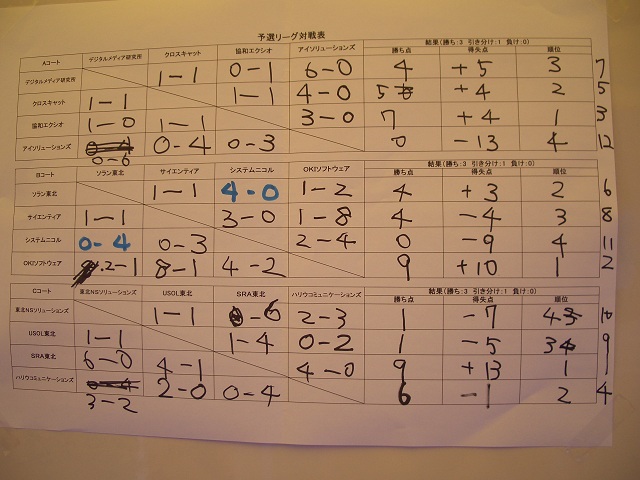 予選リーグ対戦表
Aコート デジタルメディア研究所 クロスキャット 協和エクシオ アイソリューションズ 結果(勝ち:3 引き分け:1 負け:0)
勝ち点 得失点 順位
デジタルメディア研究所 1-1 0-1 6-0 4 +5 3 7
クロスキャット 1-1 1-1 4-0 5 +4 2 5
協和エクシオ 1-0 1-1 3-0 7 +4 1 3
アイソリューションズ 0-4 0-3 0 -13 4 12
0-6
Bコート ソラン東北 サイエンティア システムニコル OKIソフトウェア 結果(勝ち:3 引き分け:1 負け:0)
勝ち点 得失点 順位
ソラン東北 1-1 4-0 1-2 4 +3 2 6
サイエンティア 1-1 3-0 1-8 4 -4 3 8
システムニコル 0-4 0-3 2-4 0 -9 4 11
OKIソフトウェア 2-1 8-1 4-2 9 +10 1 2
Cコート 東北NSソリューションズ USOL東北 SRA東北 ハリウコミュニケーションズ 結果(勝ち:3 引き分け:1 負け:0)
勝ち点 得失点 順位
東北NSソリューションズ 1-1 0-6 2-3 1 -7 4 10
USOL東北 1-1 1-4 0-2 1 -5 3 9
SRA東北 6-0 4-1 4-0 9 +13 1 1
ハリウコミュニケーションズ 2-0 0-4 6 -1 2 4
3-2